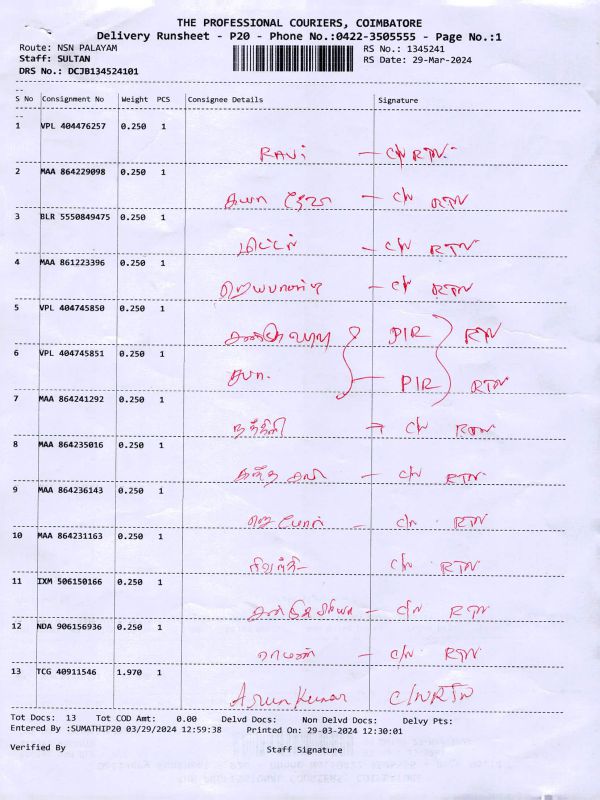 THE PROFESSIONAL COURIERS, COIMBATORE
Delivery Runsheet - P20 - Phone No.:0422-3505555 - Page No.:1
Route: NSN PALAYAM RS No.: 1345241
Staff: SULTAN RS Date: 29-Mar-2024
DRS No.: DCJB134524101
S No Consignment No Weight PCS Consignee Details Signature
1 VPL 404476257 0.250 1
RAVi - C/N RTN.
2 MAA 864229098 0.250 1
- C/N RTN
3 BLR 5550849475 0.250 1
- C/N RTN
4 MAA 861223396 0.250 1
ஜெயபாண்டி - C/N RTN
5 VPL 404745850 0.250 1
PIR RTN
6 VPL 404745851 0.250 1
- PIR RTN
7 MAA 864241292 0.250 1
C/N RTN
8 MAA 864235016 0.250 1
- C/N RTN
9 MAA 864236143 0.250 1
- C/N RTN
10 MAA 864231163 0.250 1
C/N RTN
11 IXM 506150166 0.250 1
- C/N RTN
12 NDA 906156936 0.250 1
- C/N RTN
13 TCG 40911546 1.970 1
Arun Kumar C/N RTN
Tot Docs: 13 Tot COD Amt: 0.00 Delvd Docs: Non Delvd Docs: Delvy Pts:
Entered By :SUMATHIP20 03/29/2024 12:59:38 Printed On: 29-03-2024 12:30:01
Verified By Staff Signature